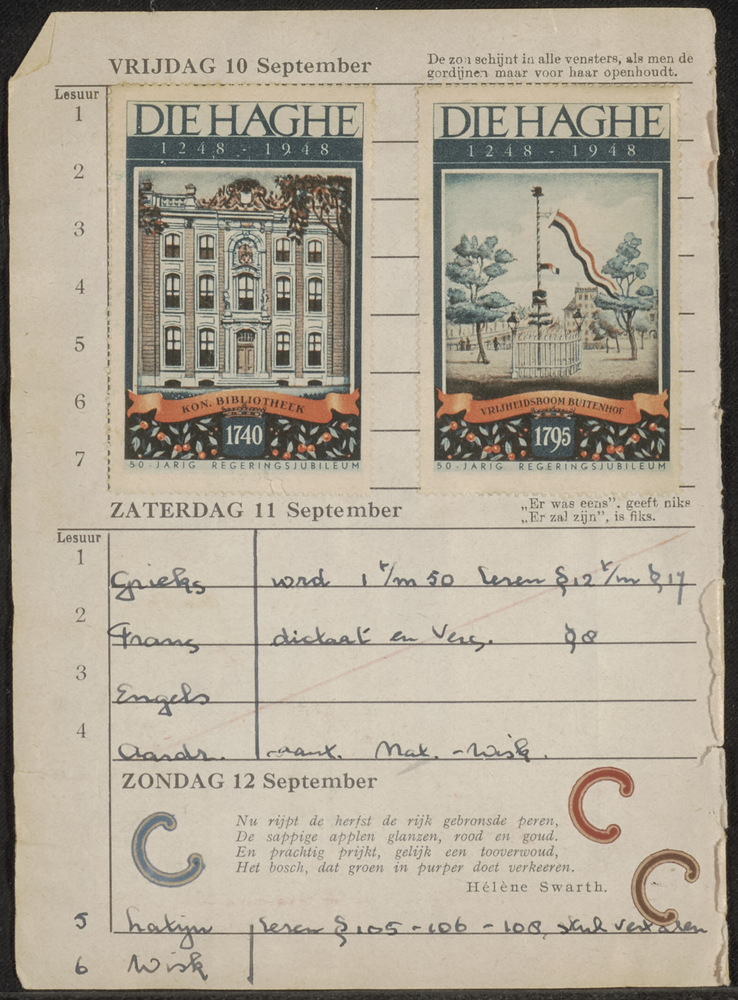 VRIJDAG 10 September
De zon schijnt in alle vensters, als men de
gordijnen maar voor haar openhoudt.
Lesuur
1
2
3
4
5
6
7
DIE HAGHE
1248 - 1948
KON. BIBLIOTHEEK
1740
50-JARIG REGERINGSJUBILEUM
DIE HAGHE
1248 - 1948
VRIJHEIDSBOOM BUITENHOF
1795
50-JARIG REGERINGSJUBILEUM
ZATERDAG 11 September
„Er was eens”, geeft niks
„Er zal zijn”, is fiks.
Lesuur
1 Grieks word 1 t/m 50 leren § 12 t/m § 17
2 Frans dictaat en Verg. § 8
3 Engels
4 Aardr. aant. Nat. - Wisk.
ZONDAG 12 September
Nu rijpt de herfst de rijk gebronsde peren,
De sappige applen glanzen, rood en goud.
En prachtig prijkt, gelijk een tooverwoud,
Het bosch, dat groen in purper doet verkeeren.
Hélène Swarth.
5 Latijn leren § 105 - 106 - 108,
6 Wisk